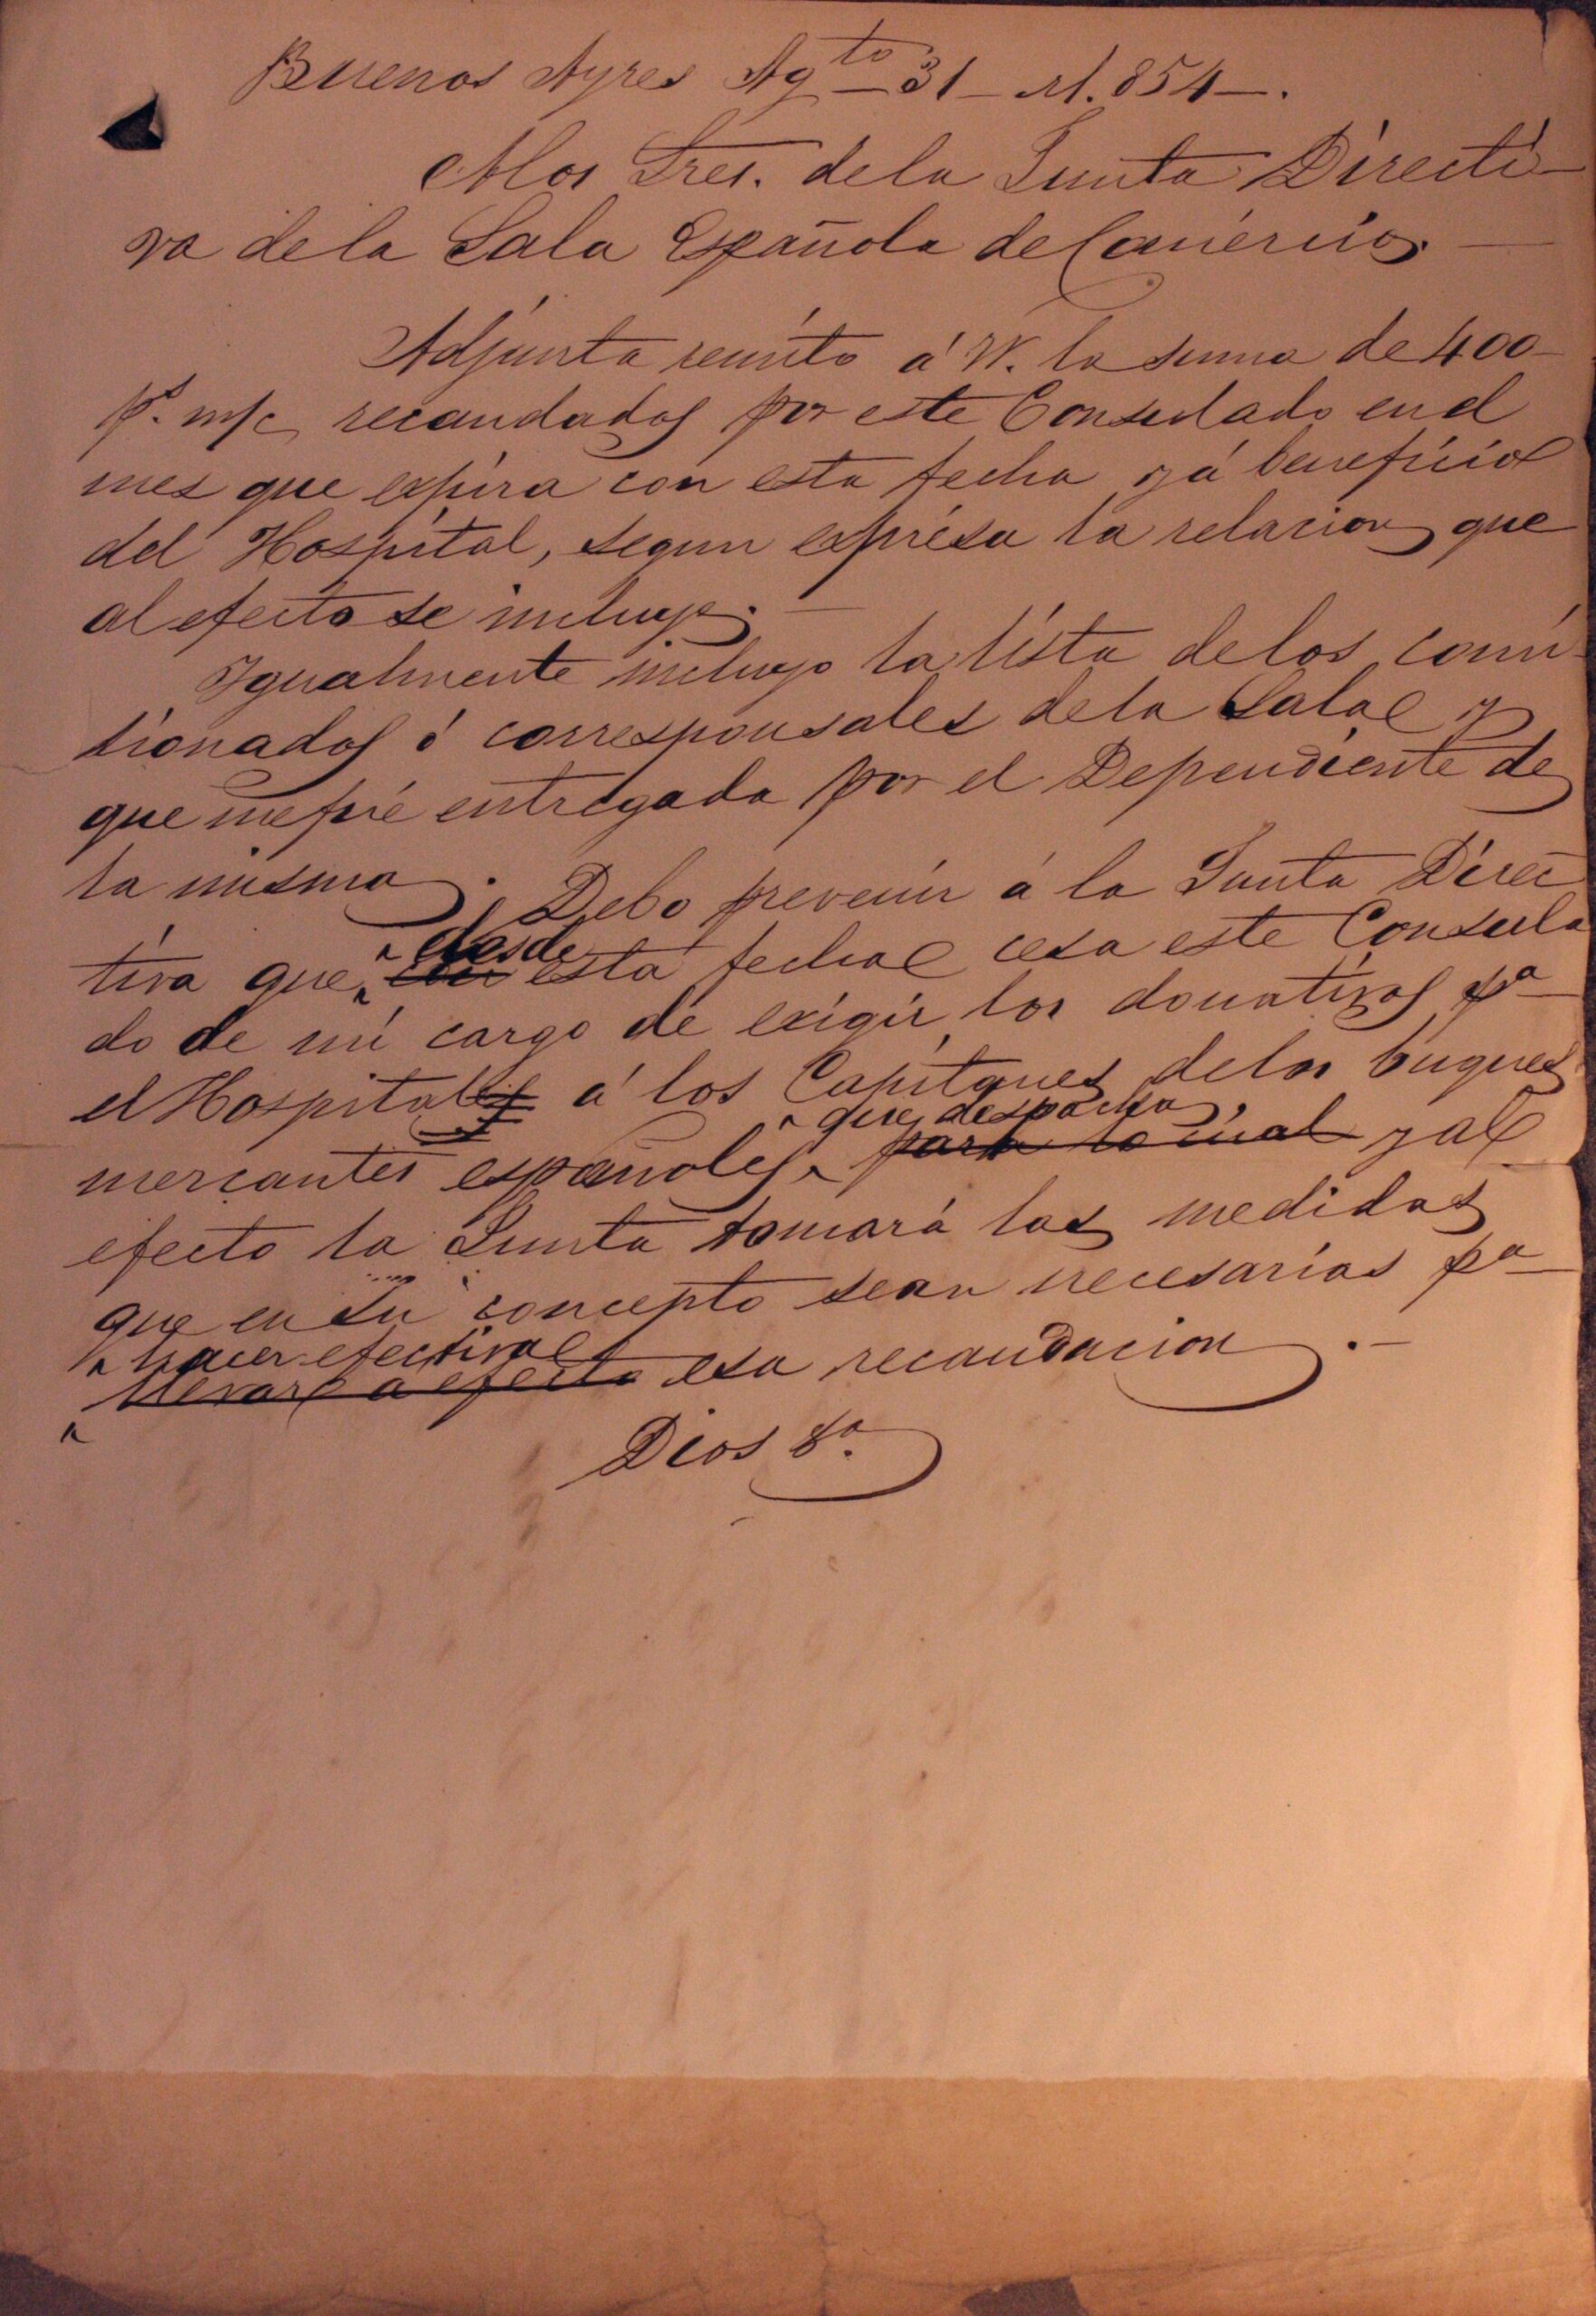 Buenos Ayres Ag.to 31 - M.854 -.
A los Sres. de la Junta Directi-
va de la Sala Española de Comércio. -
Adjunta remito á VV. la suma de 400-
p.s m/c recaudados por este Consulado en el
mes que espira con esta fecha y á beneficio
del Hospital, segun espresa la relacion que
al efecto se incluye. -
Igualmente incluyo la lista de los comi-
sionados ó corresponsales de la Sala y
que me fué entregada por el Dependiente de
la misma. Debo prevenir á la Junta Direc-
desde
tiva que con esta fecha cesa este Consula
do de mi cargo de exigir los donativos p.a
el Hospital á los Capitanes de los buques
que despacha,
mercantes españoles para lo cual y al
efecto la Junta tomará las medidas
que en su concepto sean necesarias p.a
hacer efectiva
llevar a efecto esa recaudacion. -
Dios &a.